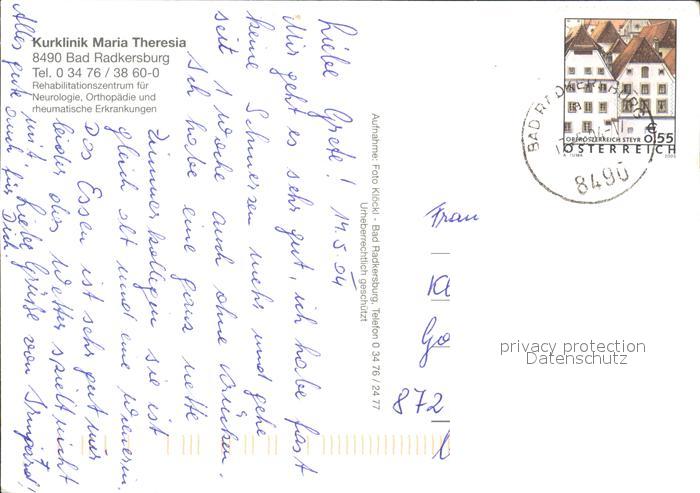 Kurklinik Maria Theresia
8490 Bad Radkersburg
Tel. 0 34 76 / 38 60-0
Rehabilitationszentrum für
Neurologie, Orthopädie und
rheumatische Erkrankungen
Liebe Grete! 14.5.04
Mir geht es sehr gut, ich habe fast
keine Schmerzen mehr und gehe
seit 1 Woche auch ohne Krücken.
Ich habe eine ganz nette
Zimmerkollegin sie ist
gleich alt und eine Wienerin.
Das Essen ist sehr gut nur
leider das Wetter spielt nicht
mit. Liebe Grüße von Irmgard!
Alles gute auch für Dich!
Aufnahme: Foto Klöckl - Bad Radkersburg, Telefon 0 34 76 / 24 77
Urheberrechtlich geschützt
BAD RADKERSBURG
8490
€ 0,55
OBERÖSTERREICH STEYR
ÖSTERREICH
A. TUMA
Frau
Kl
Go
872
privacy protection
Datenschutz